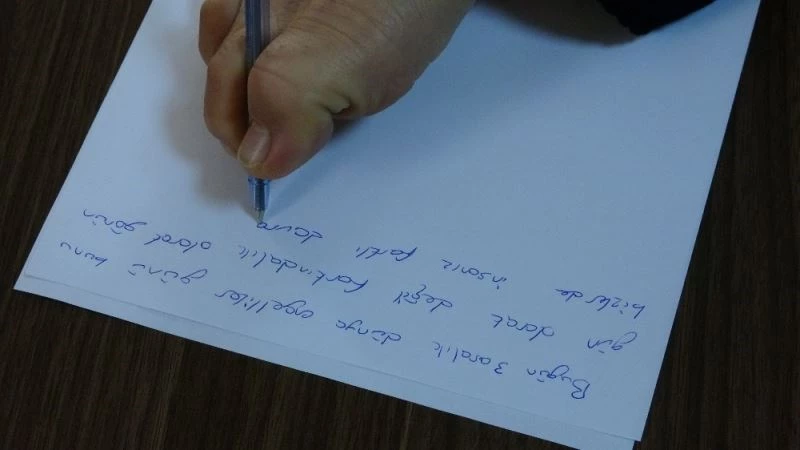 Bugün 3 aralık dünya engelliler günü bunu
gün olarak değil farkındalık olarak görün
bizlerde insanız farklı davra